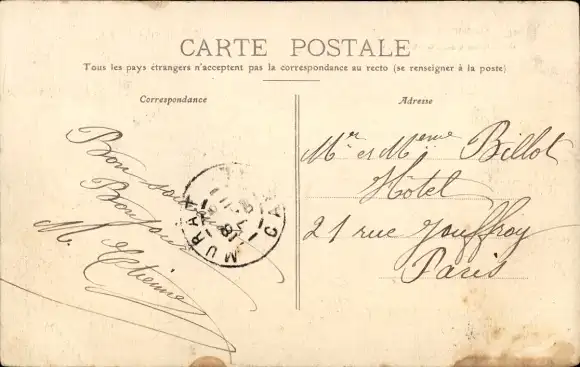 CARTE POSTALE
Tous les pays étrangers n'acceptent pas la correspondance au recto (se renseigner à la poste)
Correspondance
Bon soir
Bonjour
M. Etienne
MURAT
CA
Adresse
Mr et Meme Billot
Hôtel
21 rue Jouffroy
Paris